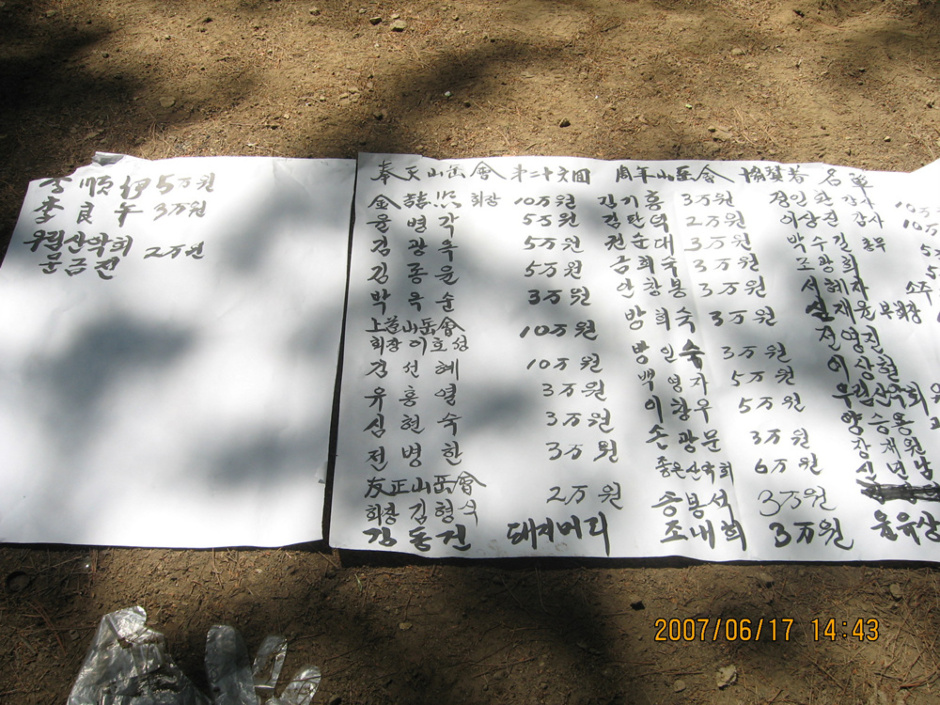 李順伊 5万원
李良午 3万원
우림산악회
문금연 2万원
奉天山岳會 第二十六回 周年山岳會 協贊者 名單
회장 10万원 김기홍 3万원 전인환 감사 10万
윤병각 5万원 김한덕 2万원 이상진 감사 10万
김광옥 5万원 전순대 3万원 박수길 총무
김종윤 5万원 금희숙 3万원 조광희
박옥순 3万원 안창봉 3万원 서혜자 소주
上道山岳會 10万원 방희숙 3万원 부회장
회장 이호성 방인숙 3万원 전영진
김선혜 10万원 백영자 5万원 이상철
유홍열 3万원 이창우 5万원 우림산악회
심현숙 3万원 손광문 3万원 양승용
전병한 3万원 좋은산악회 6万원 장채원
友正山岳會 2万원 송봉석 3万원
회장 김형석
김동진 돼지머리 조내희 3万원 윤유상
2007/06/17 14:43